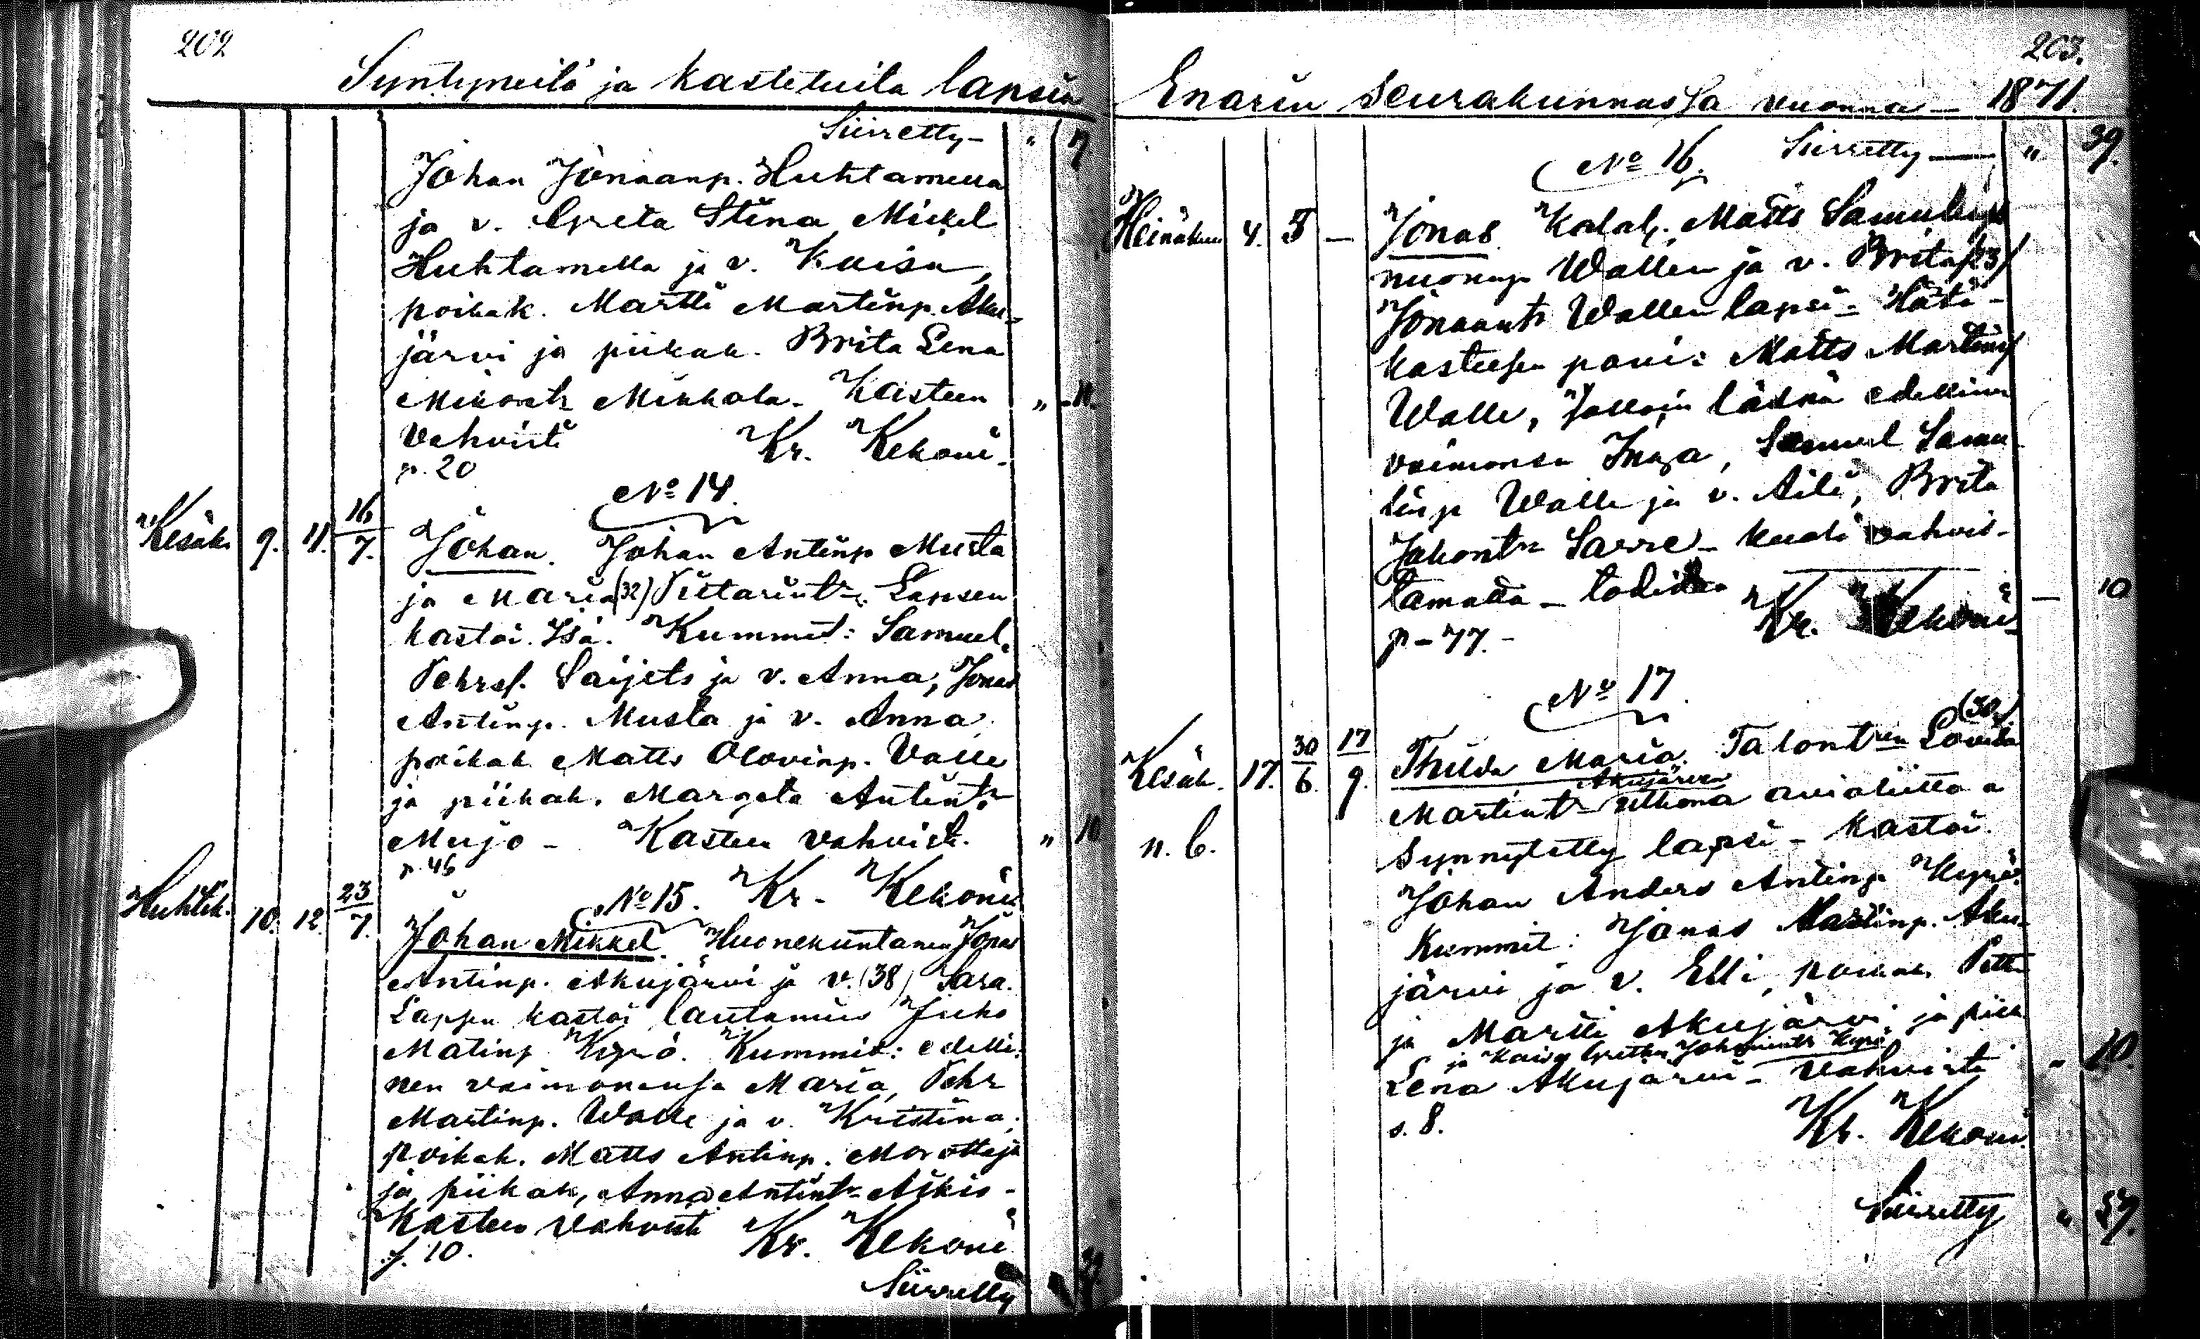 202
Syntyneitä ja kastetuita lapsia
Siirretty — " 7
Johan Jonaanp. Huhtamella
ja v. Greta Stina, Mickel
Huhtamella ja v. Kaisa,
poikak. Martti Martinp. Aku-
järvi ja piikak. Brita Lena
Mikontr Mikkola - Kasteen
vahvisti Kr. Kekoni.
p. 20
No 14.
Kesäk. 9. 11. 16/7. Johan. Johan Antinp Musta
ja Maria (32) Pietarintr. Lapsen
kastoi Isä. Kummit: Samuel
Pehrsf. Saijets ja v. Anna, Jonas
Antinp. Musta ja v. Anna
poikak Matts Olovinp. Valle
ja piikak. Margeta Antintr
Mujo - Kasteen vahvisti. " 10
p. 46
No 15. Kr. Kekoni
Huhtik. 10. 12. 23/7. Johan Mikkel. Huonekuntamen Jonas
Antinp. Akujärvi ja v. (38) Sara.
Lapsen kastoi lautamies Juho
Matinp Kyrö. Kummit: edelli-
nen vaimonensa Maria, Pehr
Martinp. Walle ja v. Kristina,
poikak. Matts Antinp. Morottaja
ja piikak, Anna Antintr Aikio -
Kasteen vahvisti Kr. Kekoni
s. 10.
Siirretty
203.
Enarin seurakunnassa vuonna — 1871.
No 16. Siirretty — " 39.
Heinäkuu 4. 5 — Jonas Matts Samulinp
nuonup Wallen ja v. Brita (23)
Jonaantr Wallen lapsi - Hätä-
kasteesen pani: Matts Martinp
Walle, Jolloin läsnä edellisen
vaimonsa Inga, Samuel Samu-
linp Walle ja v. Aili, Brita
Jakontr Sarre - kuoli vahvis-
tamatta - todistaa
Kr. Kekoni — 10
p - 77. -
No 17
(30)
Kesäk. 17. 30/6. 17/9. Thilda Maria. Talontren Lovisa
Akujärven
Martintr ulkona avioliittoa
n. b. synnytetty lapsi - Kastoi
Johan Anders Antinp Kyrö.
Kummit: Jonas Martinp. Aku-
järvi ja v. Elli, poikak Petter
ja Martti Akujärvi ja piik
ja Kaisa Gretha Johanintr Kyrö
Lena Akujärvi - vahvisti " 10.
s. 8. Kr. Kekoni
Siirretty " 59.